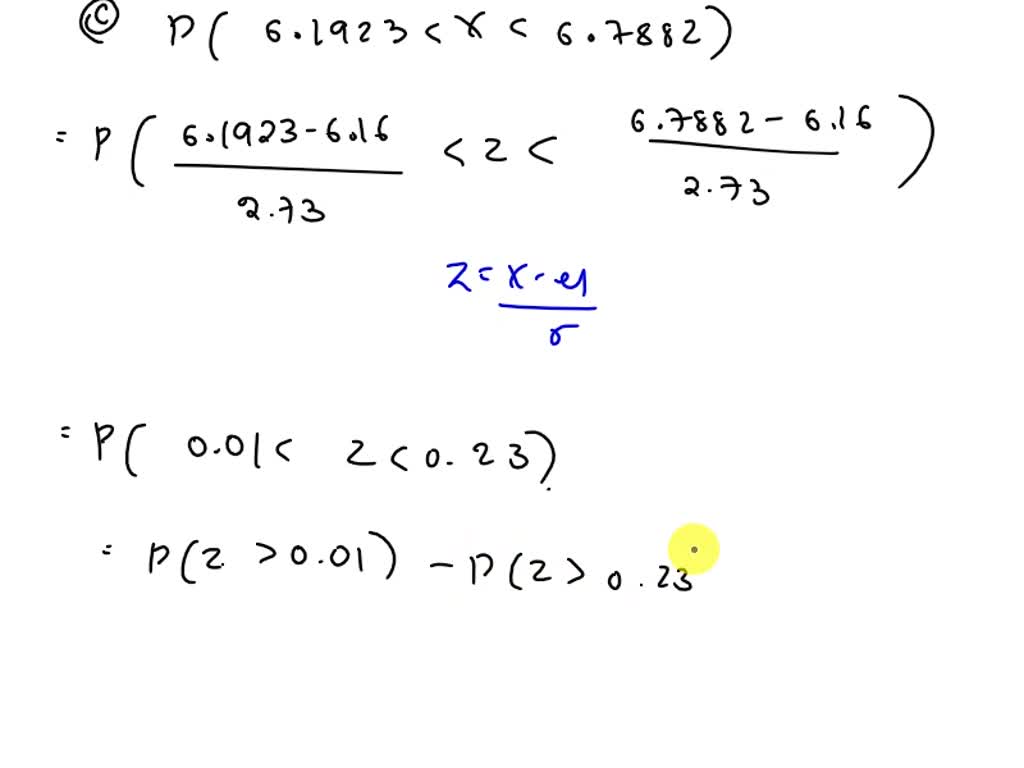 © P( 6.1923 < x < 6.7882)
= P( 6.1923-6.16 / 2.73 < z < 6.7882 - 6.16 / 2.73 )
z = x - μ / σ
= P( 0.01 < z < 0.23)
= P(z > 0.01) - P(z > 0.23